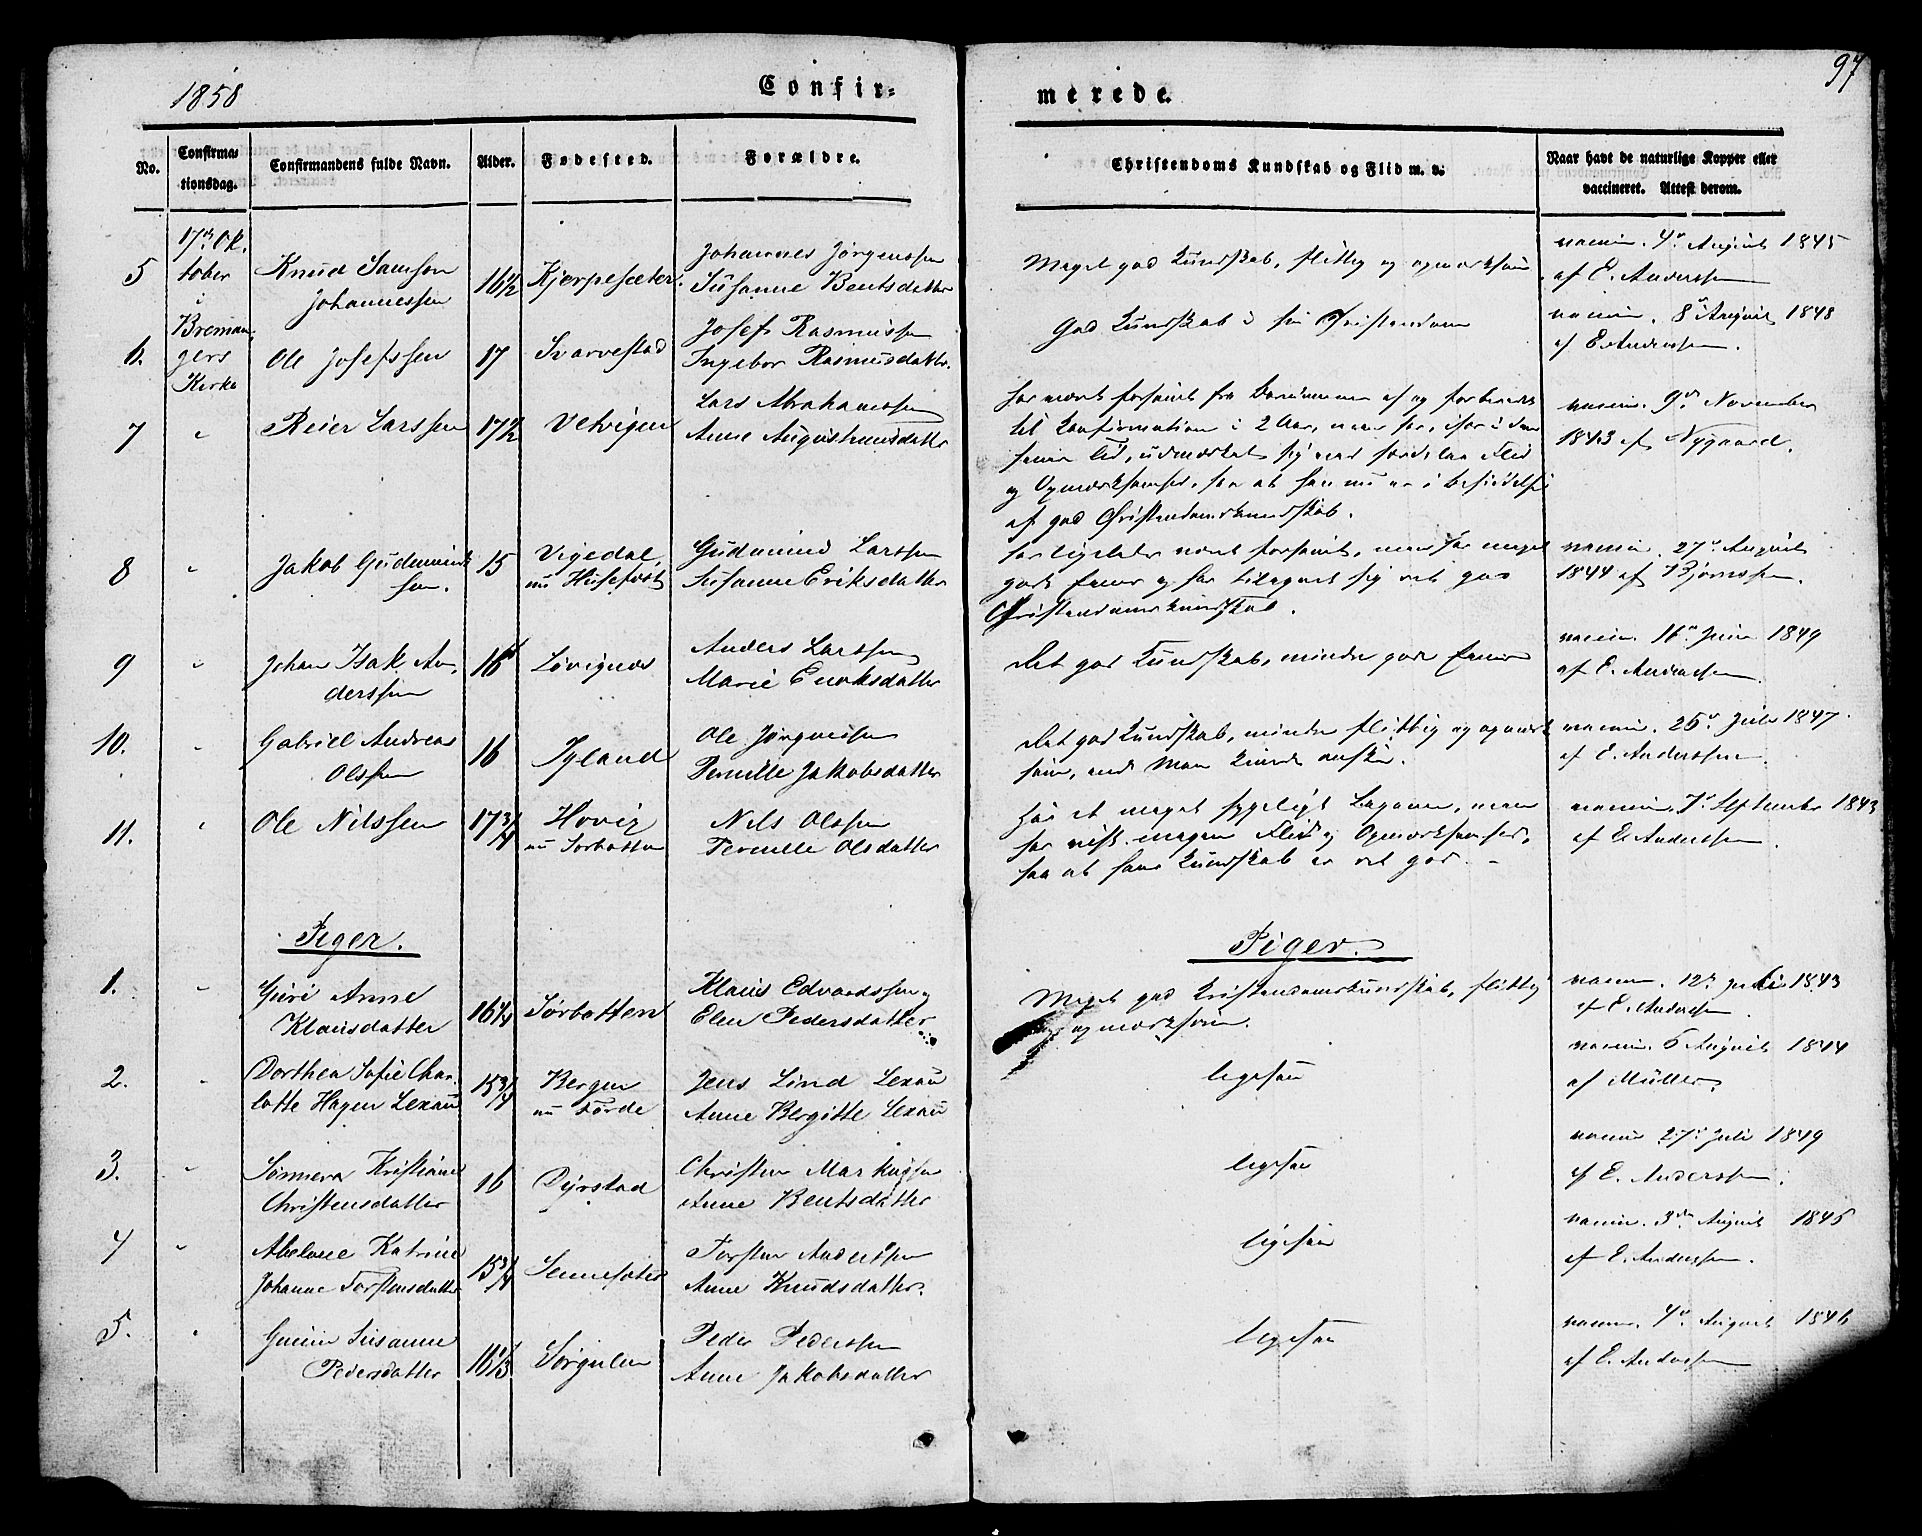 1858
Confir-
merede.
97
No.
Confirma-
tionsdag.
Confirmandens fulde Navn.
Alder.
Fødested.
Forældre.
Christendoms Kundskab og Flid m. v.
Naar havt de naturlige Kopper eller
vaccineret. Attest derom.
17de Ok-
tober
i
Breman-
gers
Kirke
5
Knud Samson
Johannessen
16½
Kjerpesæter
Johannes Jørgenssen
Susanne Bentsdatter
Meget god Kundskab, flittig og opmærksom
vaccin. 4de August 1845
af E. Anderssen
6.
Ole Josefssen
17
Svarvestad
Josef Rasmussen
Ingebor Rasmusdatter.
God Kundskab i sin Christendom
vaccin. 8de August 1848
af E. Anderssen.
7
"
Reier Larssen
17½
Vetvigen
Lars Abrahamssen
Anne Augustinusdatter
Har været forsømt fra Barndommen af og forberedt
til Confirmation i 2 Aar, men har, især i den
senere Tid, udmærket sig ved særdeles Flid
og Opmærksomhed, saa at han nu er i besiddelse
af god Christendomskundskab.
vaccin. 9de November
1843 af Nygaard.
8
"
Jakob Gudmunds-
sen.
15
Vigedal,
nu Husefæst
Gudmund Larssen
Susanne Eriksdatter
Har ligeledes været forsømt, men har meget
gode Evner og har tilegnet sig ret god
Christendomskundskab.
vaccin. 27de August
1844 af Bjørnssen.
9
"
Johan Isak An-
derssen
16
Løvignes
Anders Larssen
Marie Enoksdatter
Ret god Kundskab, mindre gode Evner
vaccin. 16de Juni 1849
af E. Anderssen.
10.
"
Gabriel Andreas
Olssen
16
Igland
Ole Jørgenssen
Pernille Jakobsdatter
Ret god Kundskab, mindre flittig og opmærk-
som, end man kunde ønske.
vaccin. 25de Juli 1847.
af E. Anderssen.
11.
"
Ole Nilssen
17¾
Hovig
nu Sørbotten
Nils Olssen
Pernille Olsdatter
Har et meget sygeligt Legeme, men
har vist megen Flid og Opmærksomhed,
saa at hans Kundskab er ret god.
vaccin. 7de September 1843
af E. Anderssen.
Piger.
Piger.
1.
"
Guri Anne
Klausdatter
16¼
Sørbotten
Klaus Edvardssen
Elen Pedersdatter
Meget god Kristendomskundskab, flittig
og opmærksom.
vaccin. 12de Juli 1843
af E. Anderssen.
2.
"
Dorthea Sofie Char-
lotte Hagen Lexau
15¾
Bergen
nu Førde
Jens Lind Lexau
Anne Bergitte Lexau
ligesaa
vaccin. 6 August 1844
af Müller.
3.
"
Sønneva Kristiane
Christensdatter
16
Dyrstad
Christen Markussen
Anne Bentsdatter
ligesaa
vaccin 27de Juli 1849
af E. Anderssen.
4
"
Abelone Katrine
Johanne Torstensdatter
15¾
Sennesæter
Torsten Anderssen
Anne Knudsdatter.
ligesaa
vaccin. 3die August 1845
af E. Anderssen.
5.
"
Susanne
Pedersdatter
16⅓
Sørgulen
Peder Pederssen
Anne Jakobsdatter
ligesaa
vaccin. 4de August 1846
af E. Anderssen